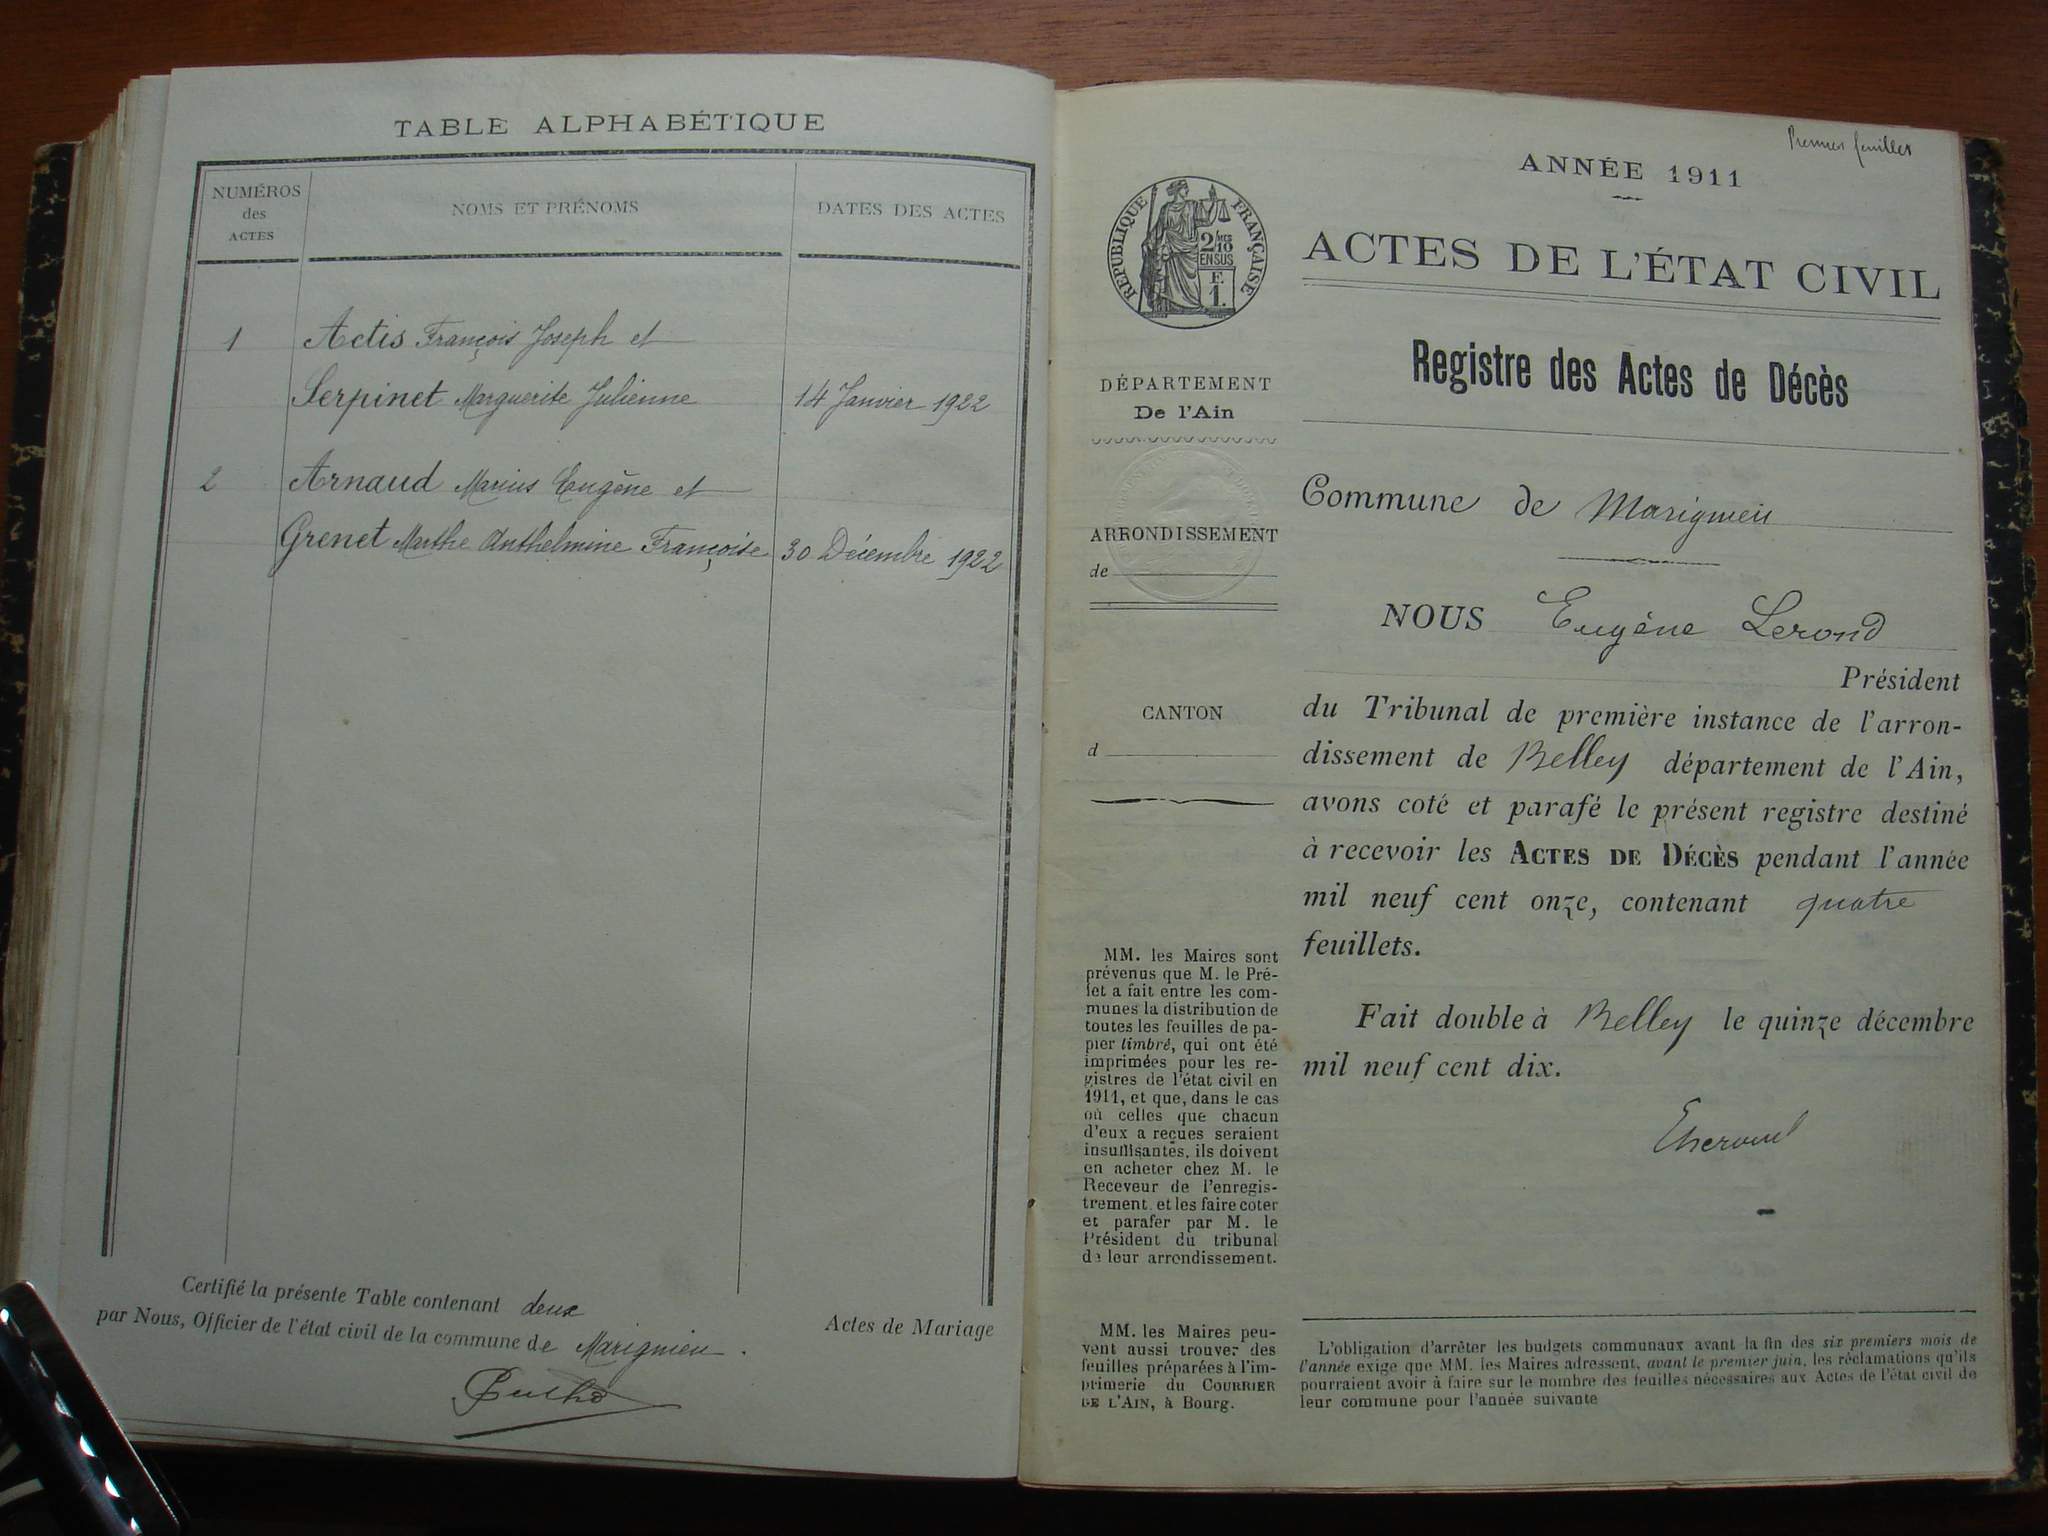 TABLE ALPHABÉTIQUE
NUMÉROS
des
ACTES
NOMS ET PRÉNOMS
DATES DES ACTES
1 Actis François Joseph et
Serpinet Marguerite Julienne 14 Janvier 1922
2 Arnaud Marius Eugène et
Grenet Marthe Anthelmine Françoise 30 Décembre 1922
Certifié la présente Table contenant deux
par Nous, Officier de l'état civil de la commune de Marignieu.
Actes de Mariage
Premier feuillet
ANNÉE 1911
RÉPUBLIQUE FRANÇAISE
2/MES
10
EN SUS
F.
1.
ACTES DE L'ÉTAT CIVIL
Registre des Actes de Décès
DÉPARTEMENT
De l'Ain
ARRONDISSEMENT
de
CANTON
d
Commune de Marignieu
NOUS Eugène Lerond
Président
du Tribunal de première instance de l'arron-
dissement de Belley département de l'Ain,
avons coté et parafé le présent registre destiné
à recevoir les ACTES DE DÉCÈS pendant l'année
mil neuf cent onze, contenant quatre
feuillets.
Fait double à Belley le quinze décembre
mil neuf cent dix.
MM. les Maires sont
prévenus que M. le Pré-
fet a fait entre les com-
munes la distribution de
toutes les feuilles de pa-
pier timbré, qui ont été
imprimées pour les re-
gistres de l'état civil en
1911, et que, dans le cas
où celles que chacun
d'eux a reçues seraient
insuffisantes, ils doivent
en acheter chez M. le
Receveur de l'enregis-
trement, et les faire coter
et parafer par M. le
Président du tribunal
de leur arrondissement.
MM. les Maires peu-
vent aussi trouver des
feuilles préparées à l'im-
primerie du COURRIER
DE L'AIN, à Bourg.
L'obligation d'arrêter les budgets communaux avant la fin des six premiers mois de
l'année exige que MM. les Maires adressent, avant le premier juin, les réclamations qu'ils
pourraient avoir à faire sur le nombre des feuilles nécessaires aux Actes de l'état civil de
leur commune pour l'année suivante